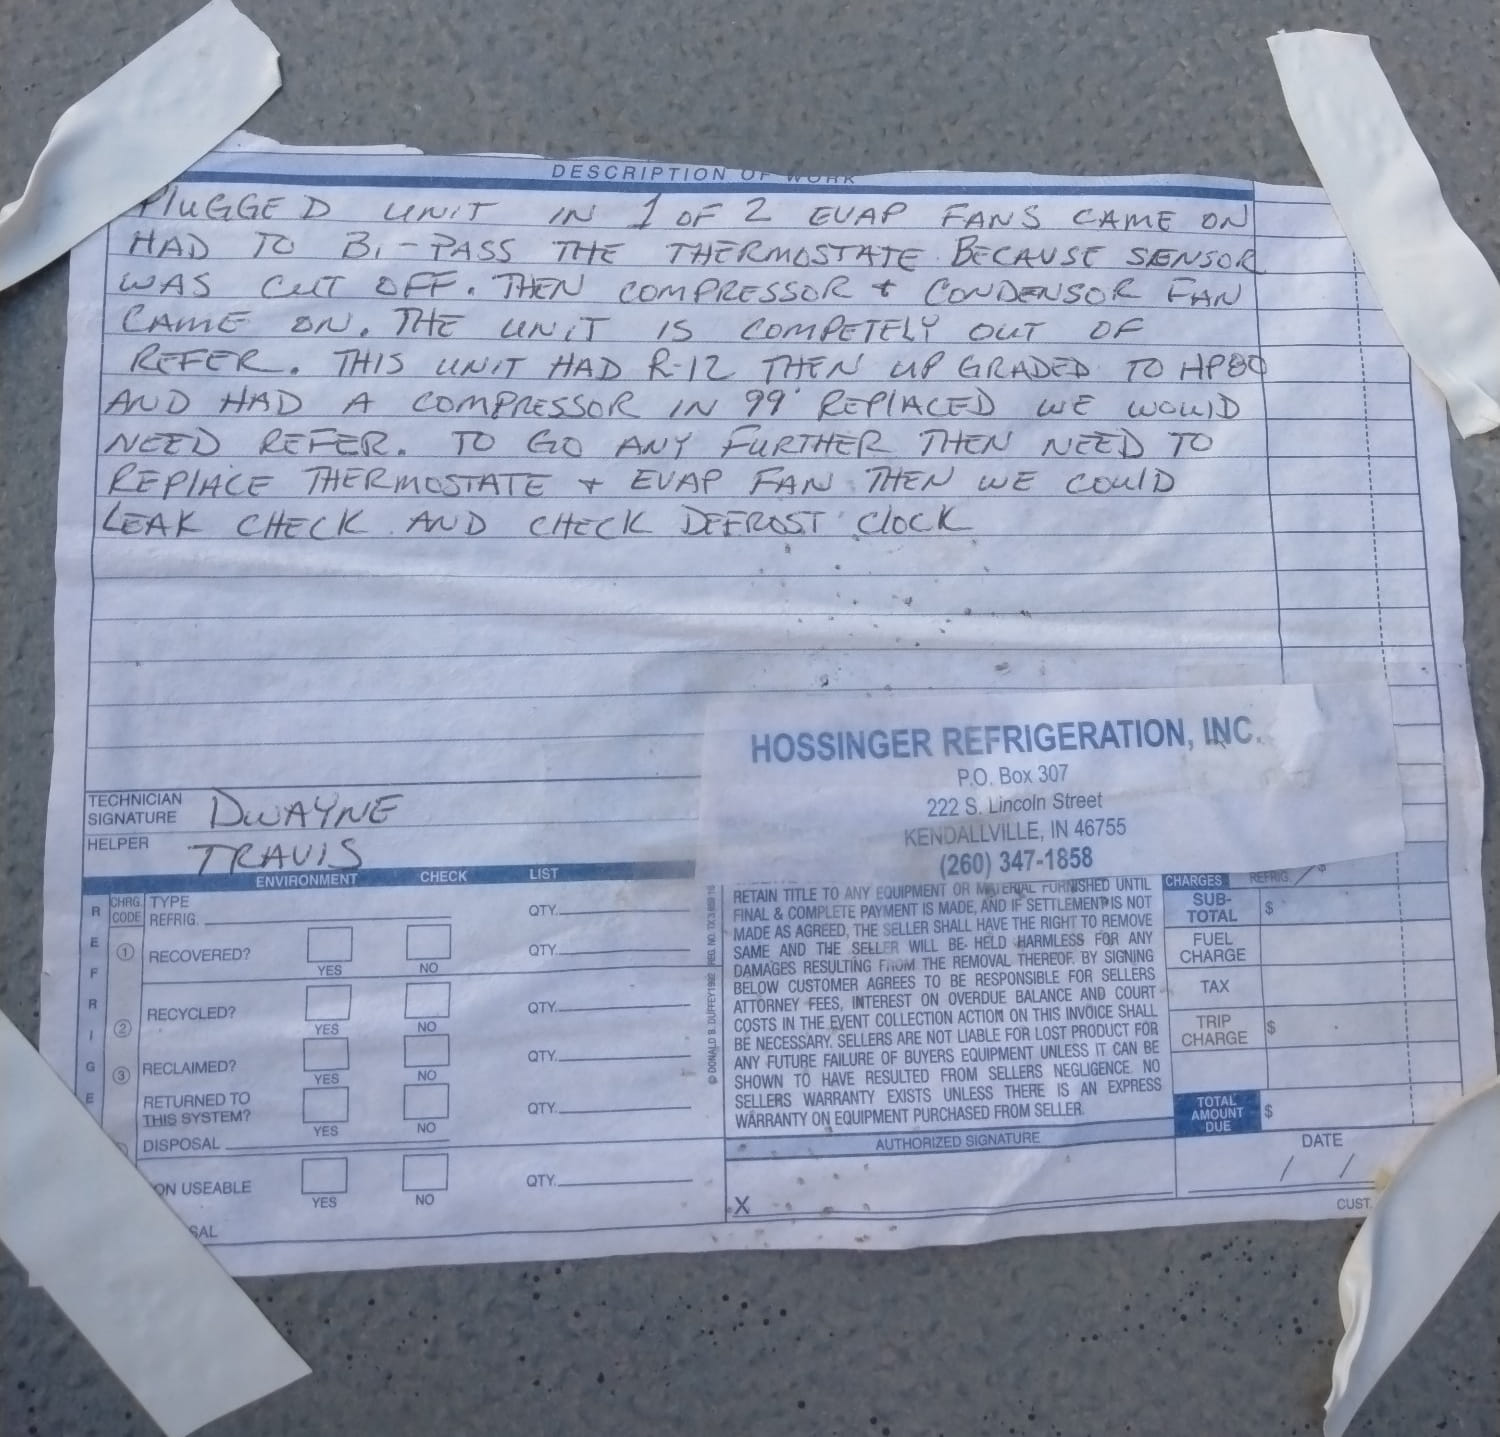 DESCRIPTION OF WORK
PlUGGED UNIT IN 1 OF 2 EVAP FANS CAME ON
HAD TO Bi-PASS THE THERMOSTATE BECAUSE SENSOR
WAS CUT OFF. THEN COMPRESSOR + CONDENSOR FAN
CAME ON. THE UNIT IS COMPETELY OUT OF
REFER. THIS UNIT HAD R-12 THEN UP GRADED TO HP80
AND HAD A COMPRESSOR IN 99' REPlACED WE WOUlD
NEED REFER. TO GO ANY FURTHER THEN NEED TO
REPlACE THERMOSTATE + EVAP FAN THEN WE COUlD
LEAK CHECK AND CHECK DEFROST ClOCK
HOSSINGER REFRIGERATION, INC.
P.O. Box 307
222 S. Lincoln Street
KENDALLVILLE, IN 46755
(260) 347-1858
TECHNICIAN
SIGNATURE DWAYNE
HELPER TRAVIS
ENVIRONMENT CHECK LIST
REFRIGE
CHRG. CODE
TYPE
REFRIG.
QTY.
1 RECOVERED? YES NO QTY.
2 RECYCLED? YES NO QTY.
3 RECLAIMED? YES NO QTY.
RETURNED TO
THIS SYSTEM? YES NO QTY.
DISPOSAL
ON USEABLE YES NO QTY.
SAL
© DONALD B. DUFFEY 1992
RETAIN TITLE TO ANY EQUIPMENT OR MATERIAL FURNISHED UNTIL
FINAL & COMPLETE PAYMENT IS MADE, AND IF SETTLEMENT IS NOT
MADE AS AGREED, THE SELLER SHALL HAVE THE RIGHT TO REMOVE
SAME AND THE SELLER WILL BE HELD HARMLESS FOR ANY
DAMAGES RESULTING FROM THE REMOVAL THEREOF. BY SIGNING
BELOW CUSTOMER AGREES TO BE RESPONSIBLE FOR SELLERS
ATTORNEY FEES, INTEREST ON OVERDUE BALANCE AND COURT
COSTS IN THE EVENT COLLECTION ACTION ON THIS INVOICE SHALL
BE NECESSARY. SELLERS ARE NOT LIABLE FOR LOST PRODUCT FOR
ANY FUTURE FAILURE OF BUYERS EQUIPMENT UNLESS IT CAN BE
SHOWN TO HAVE RESULTED FROM SELLERS NEGLIGENCE. NO
SELLERS WARRANTY EXISTS UNLESS THERE IS AN EXPRESS
WARRANTY ON EQUIPMENT PURCHASED FROM SELLER.
AUTHORIZED SIGNATURE
X
CHARGES REFRIG. $
SUB-
TOTAL $
FUEL
CHARGE
TAX
TRIP
CHARGE $
TOTAL
AMOUNT
DUE $
DATE
/ /
CUST.